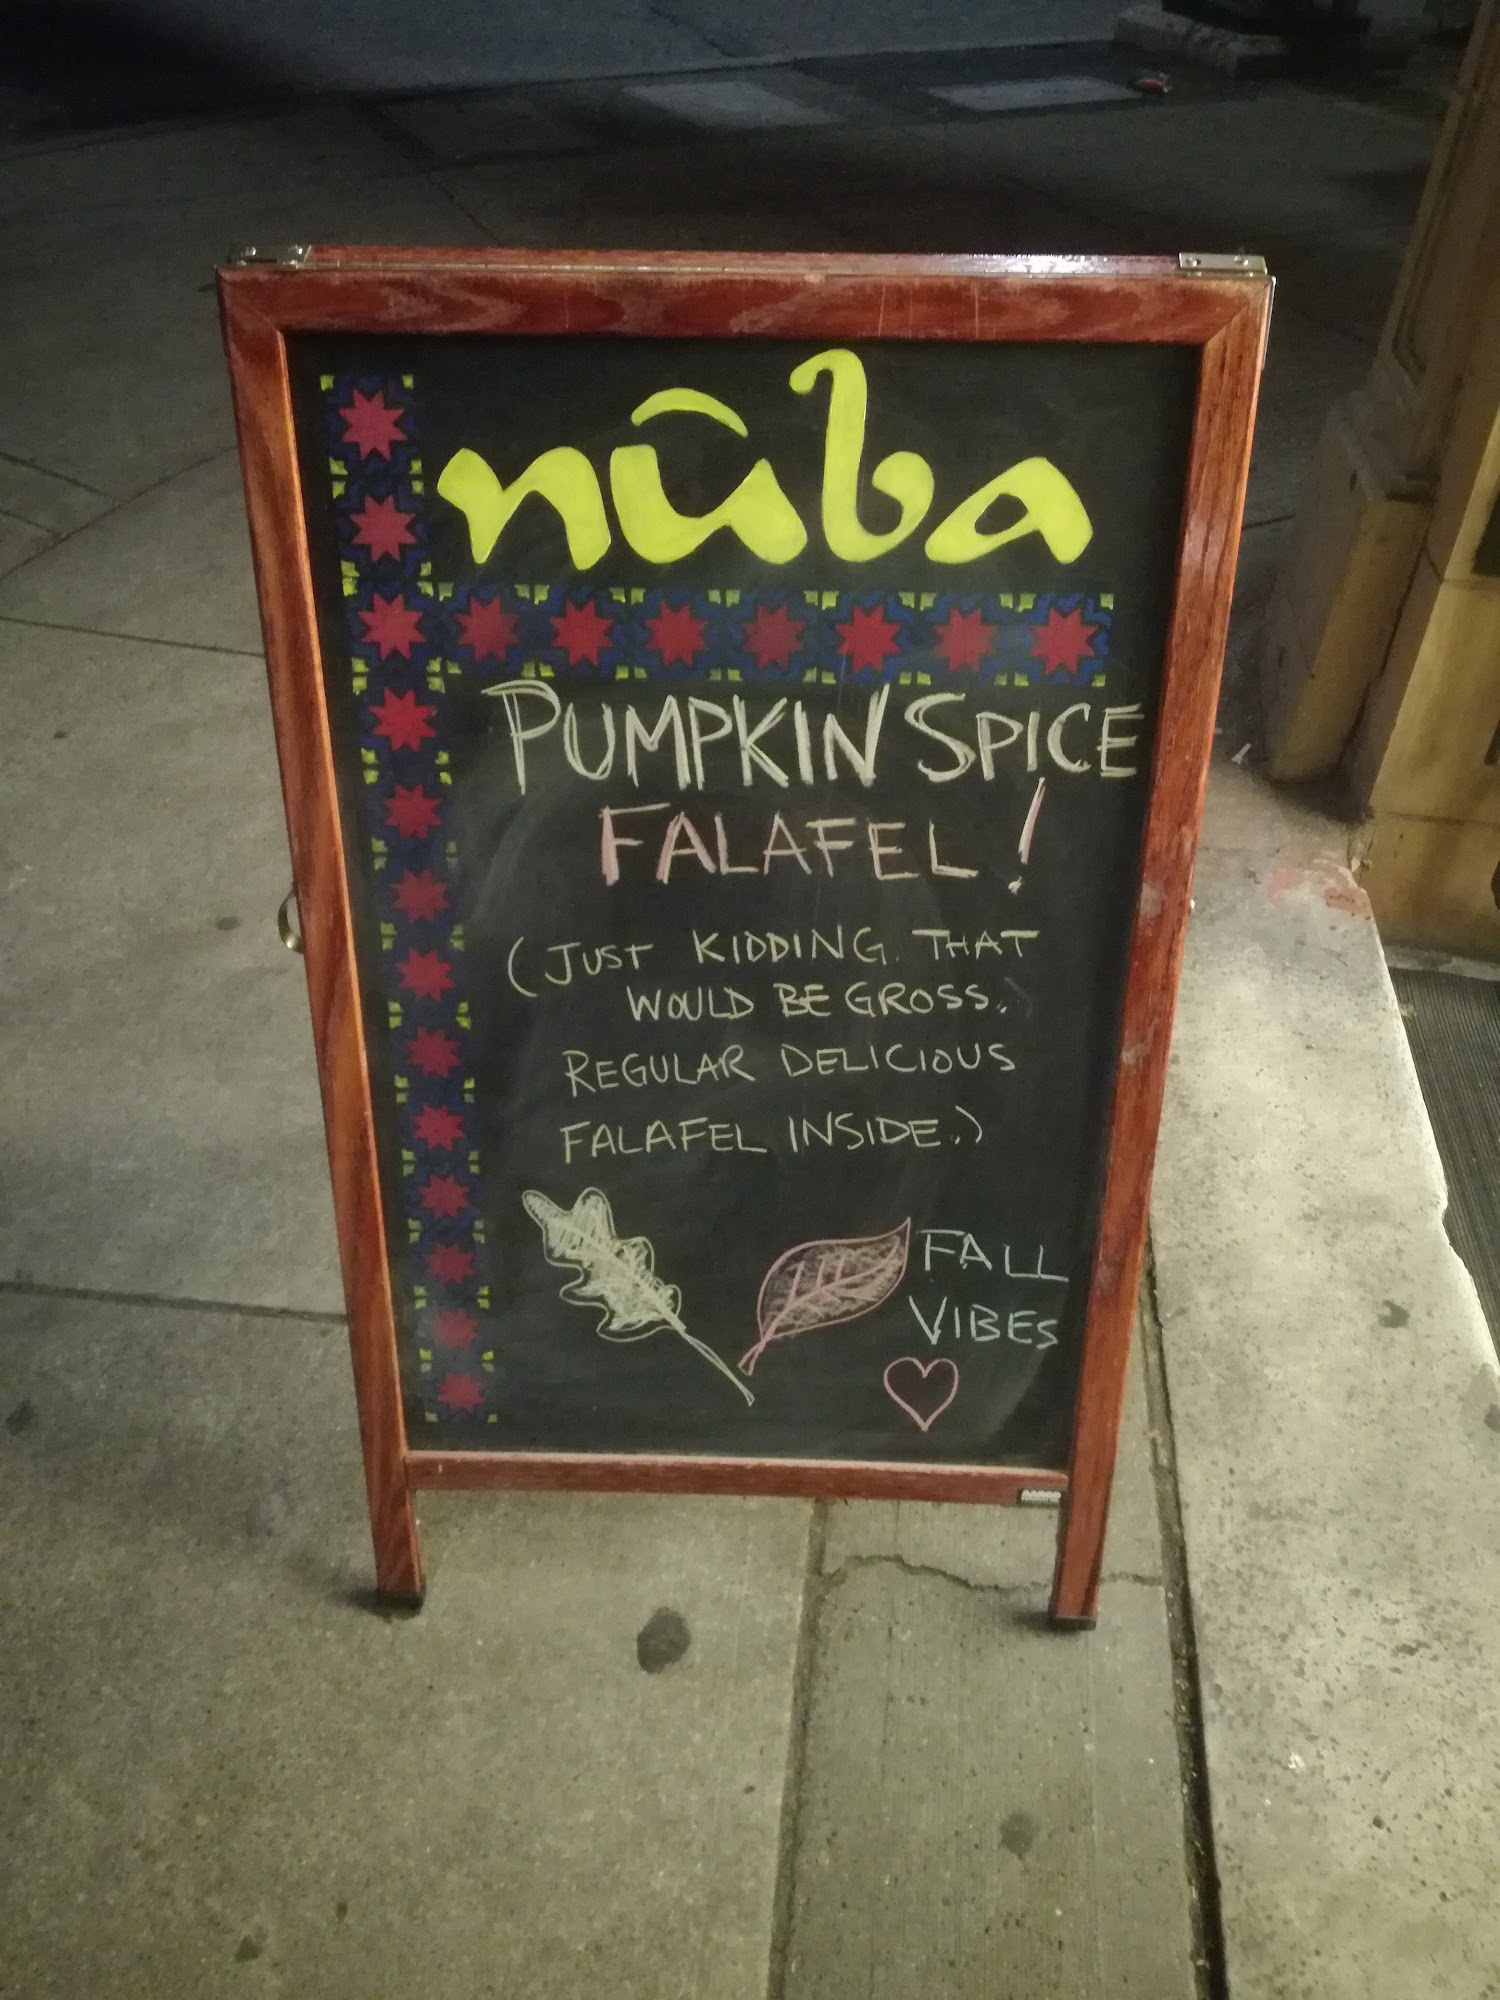 nûba
PUMPKIN SPICE
FALAFEL!
(JUST KIDDING. THAT
WOULD BE GROSS.
REGULAR DELICIOUS
FALAFEL INSIDE.)
FALL
VIBES